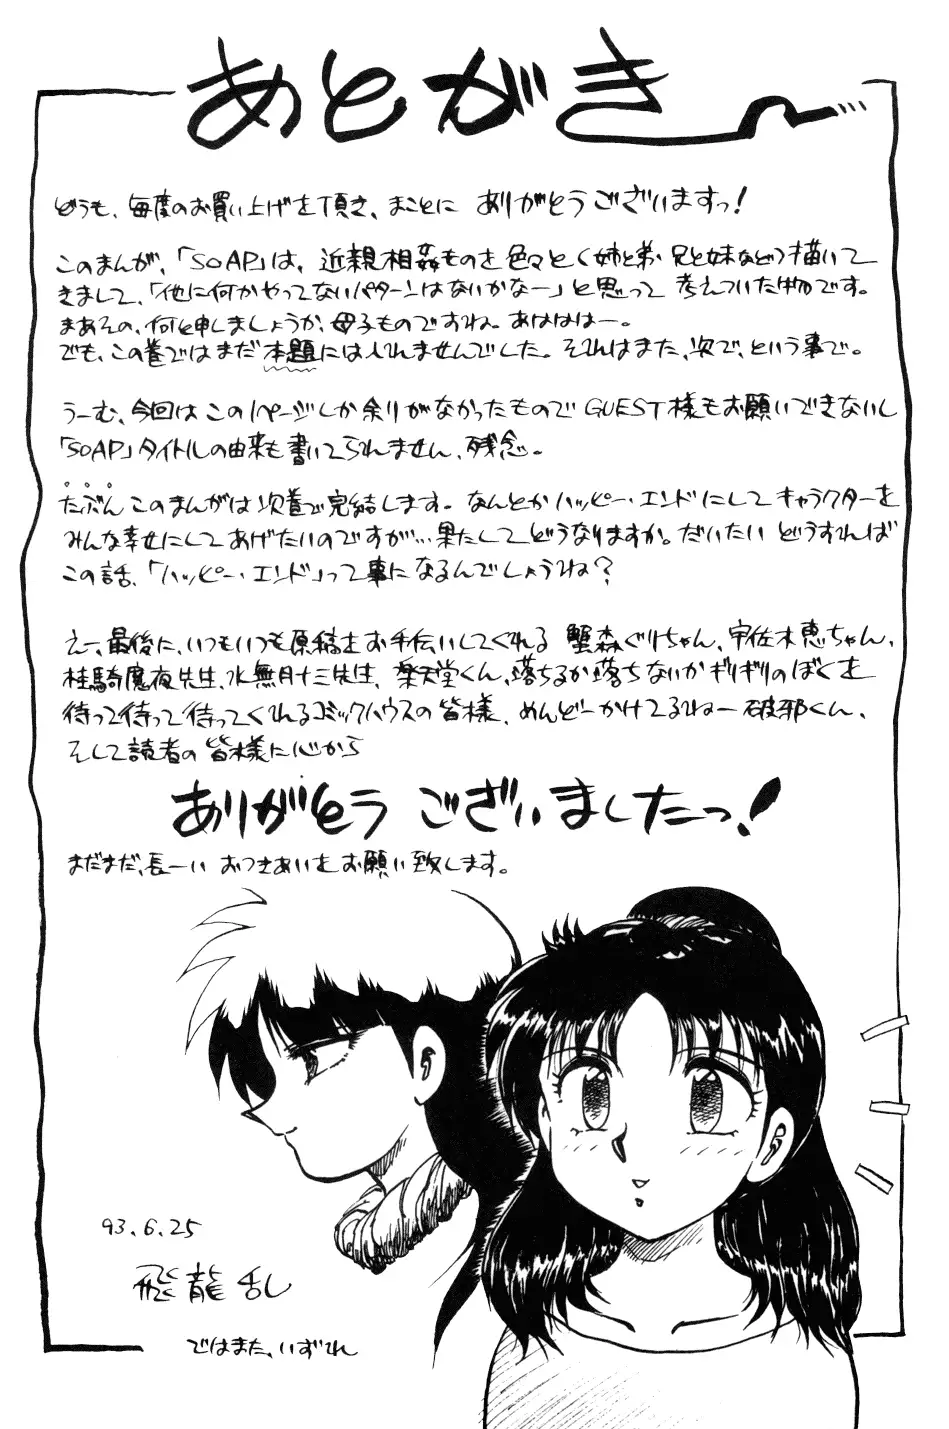 あとがき〜…
どうも、毎度のお買い上げを頂き、まことに ありがとうございますっ！
このまんが、「SOAP」は、近親相姦ものを色々と〈姉と弟・兄と妹など〉描いて
きまして、「他に何かやってないパターンはないかなー」と思って 考えついた物です。
まあその、何と申しましょうか、母子ものですね。あはははー。
でも、この巻ではまだ本題には入れませんでした。それはまた、次で、という事で。
うーむ、今回はこの1ページしか余りがなかったもので GUEST様もお願いできないし
「SOAP」タイトルの由来も書いてられません、残念。
たぶんこのまんがは次巻で完結します。なんとかハッピー・エンドにしてキャラクターを
みんな幸せにしてあげたいのですが…果たしてどうなりますか。だいたい どうすれば
この話、「ハッピー・エンド」って事になるんでしょうね？
えー、最後に、いつもいつも原稿をお手伝いしてくれる 蟹森ぐりちゃん、宇佐木恵ちゃん、
桂騎魔夜先生、水無月十三先生、楽天堂くん、落ちるか落ちないかギリギリのぼくを
待って待って待ってくれるコミックハウスの皆様、めんどーかけてるねー破邪くん、
そして読者の皆様に心から
ありがとう ございましたっ！
まだまだ、長ーい おつきあいをお願い致します。
93.6.25
飛龍乱
ではまた、いずれ